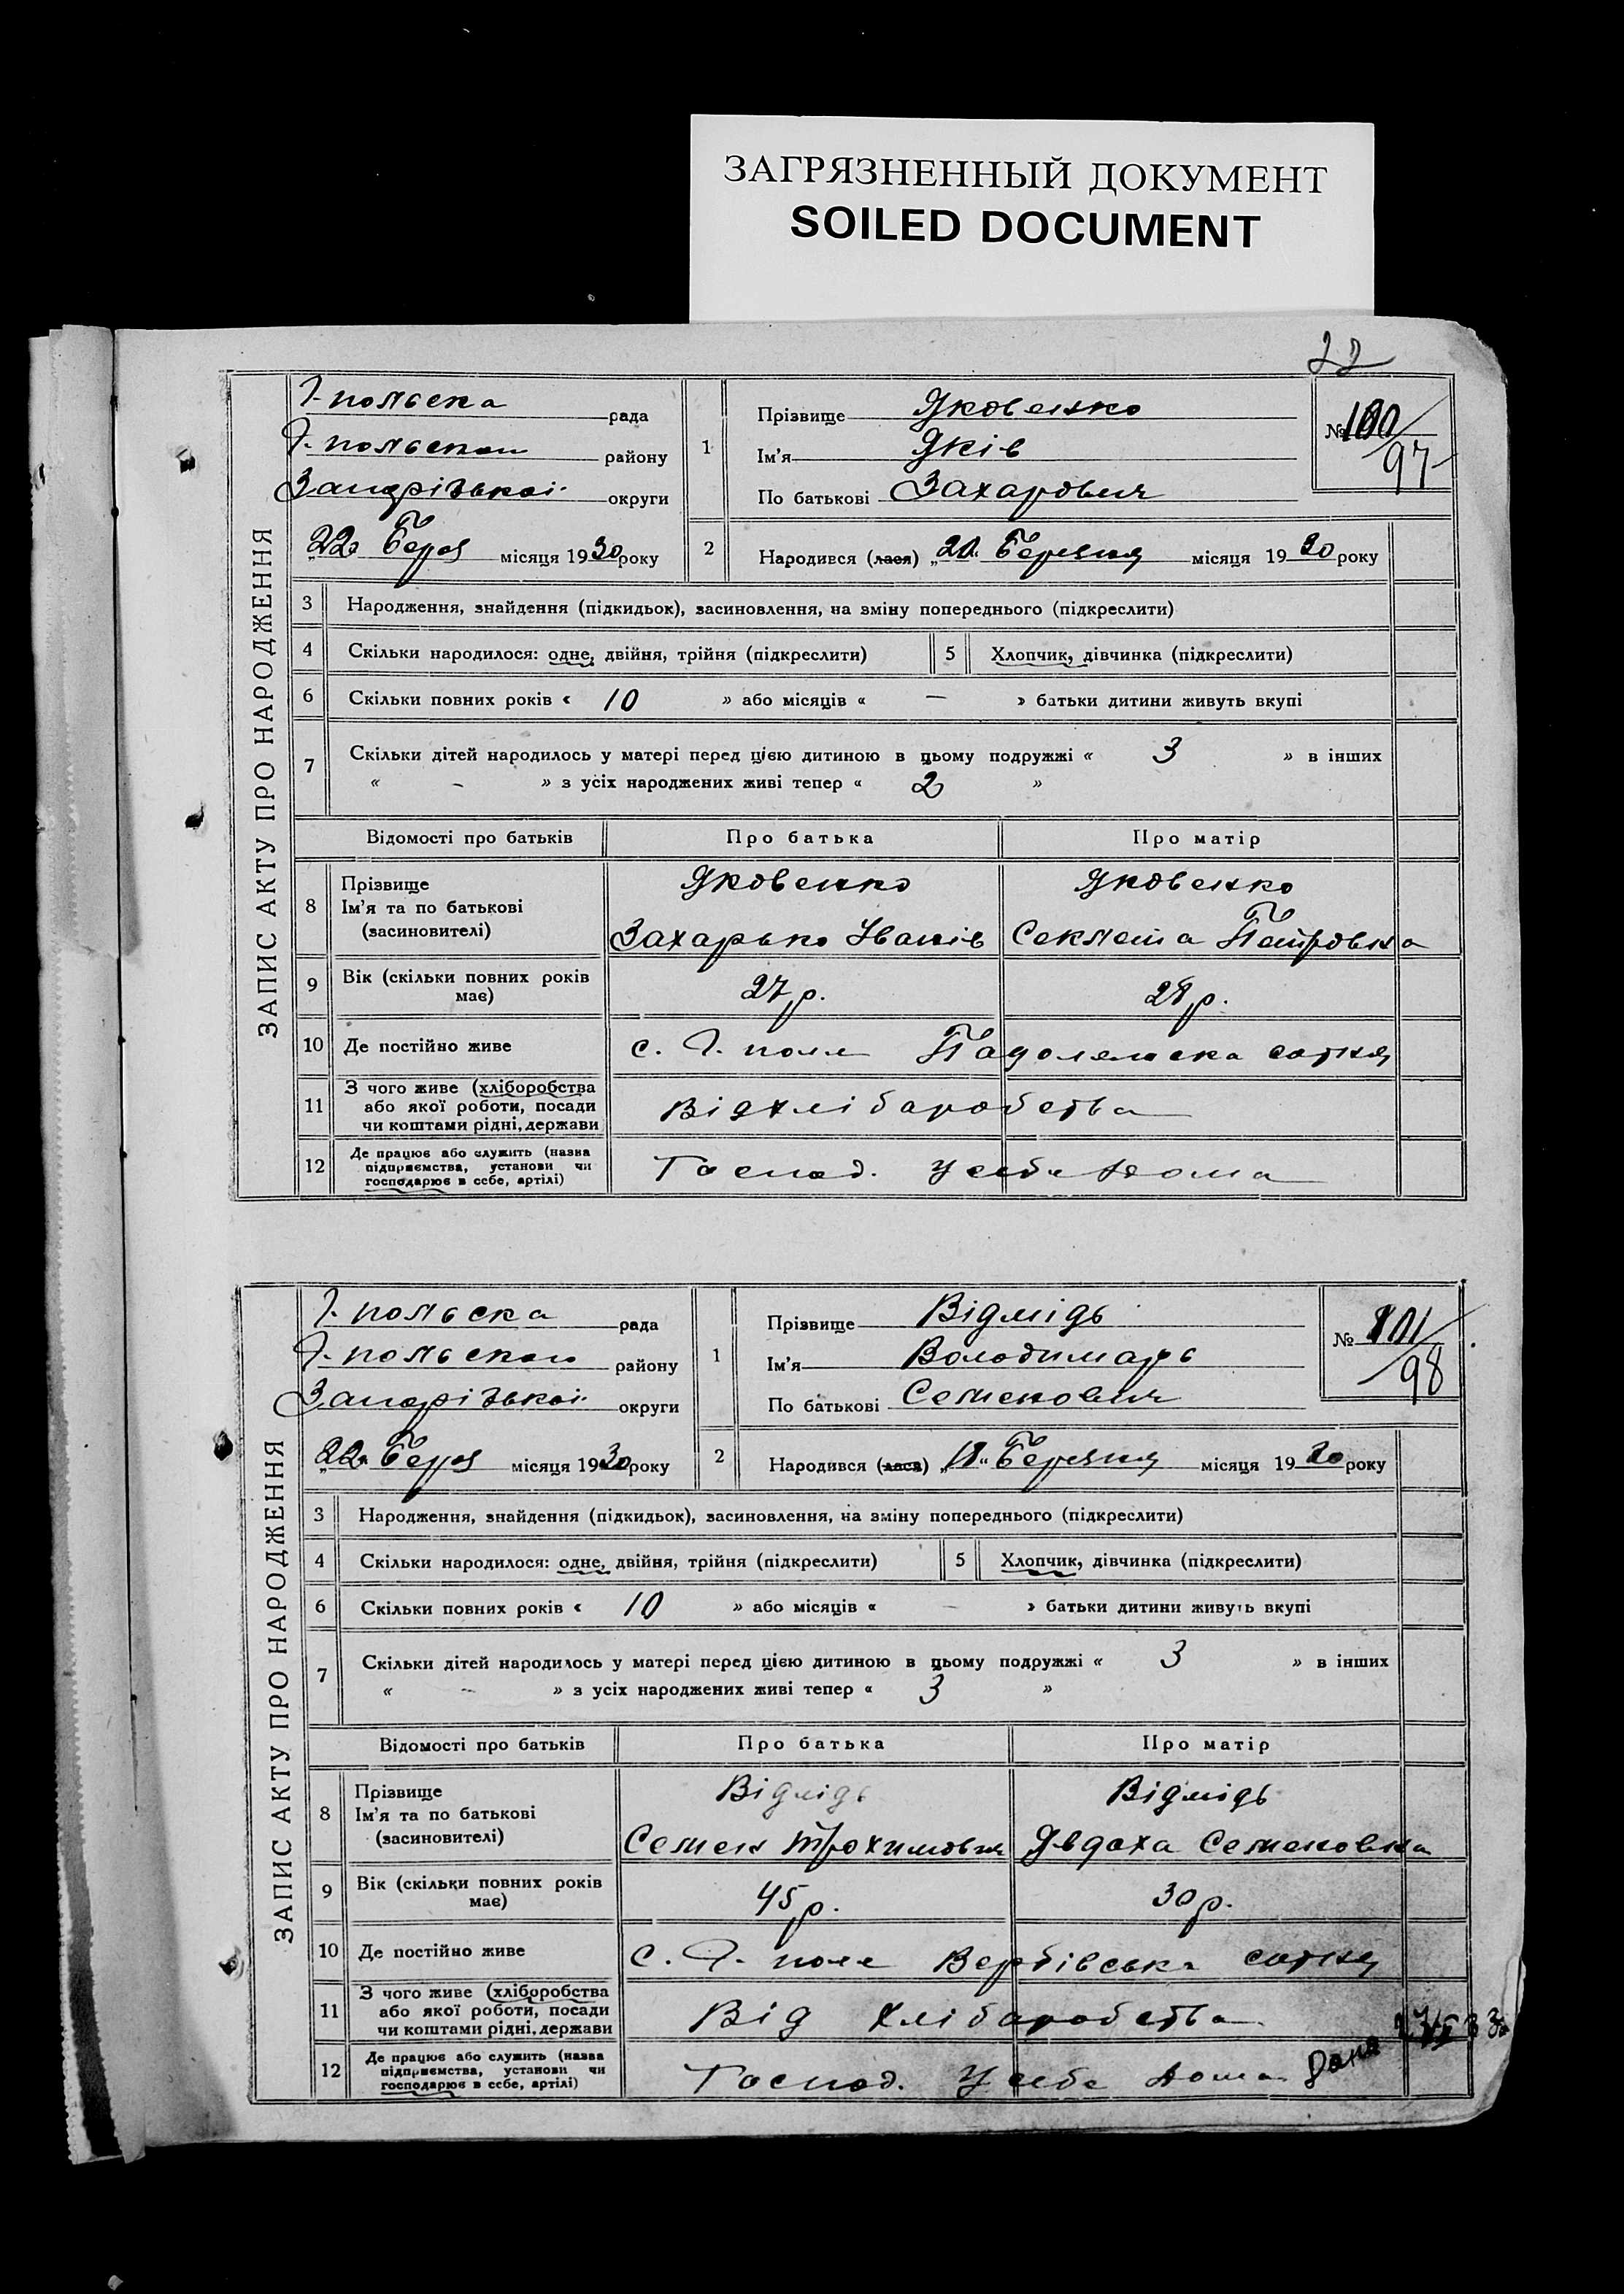 ЗАГРЯЗНЕННЫЙ ДОКУМЕНТ
SOILED DOCUMENT
ЗАПИС АКТУ ПРО НАРОДЖЕННЯ
Г-польска рада
Г-польскои району
Запорізькоі округи
22 Берез місяця 1930 року
1
Прізвище Яковенко
Ім'я Яків
По батькові Захарович
№ 100
97
2
Народився (лася) Березня місяця 1930 року
3 Народження, знайдення (підкидьок), засиновлення, на зміну попереднього (підкреслити)
4 Скільки народилося: одне, двійня, трійня (підкреслити) 5 Хлопчик, дівчинка (підкреслити)
6 Скільки повних років « 10 » або місяців « — » батьки дитини живуть вкупі
7 Скільки дітей народилось у матері перед цією дитиною в цьому подружжі « 3 » в інших
« - » з усіх народжених живі тепер « 2 »
Відомості про батьків Про батька Про матір
8 Прізвище
Ім'я та по батькові
(засиновителі)
Яковенко Яковенко
Захарько Іванів Секлета Петровна
9 Вік (скільки повних років має) 27 р. 28 р.
10 Де постійно живе с. Г. поле сотня
11 З чого живе (хліборобства
або якої роботи, посади
чи коштами рідні, держави
Від хліборобства
12 Де працює або служить (назва
підприємства, установи чи
господарює в себе, артілі)
Господ. у себе дома
ЗАПИС АКТУ ПРО НАРОДЖЕННЯ
Г-польска рада
Г-польскои району
Запорізькоі округи
22 Берез місяця 1930 року
1
Прізвище Відмідь
Ім'я Володимарь
По батькові Семенович
№ 101
98
2
Народився (лася) Березня місяця 1930 року
3 Народження, знайдення (підкидьок), засиновлення, на зміну попереднього (підкреслити)
4 Скільки народилося: одне, двійня, трійня (підкреслити) 5 Хлопчик, дівчинка (підкреслити)
6 Скільки повних років « 10 » або місяців « — » батьки дитини живуть вкупі
7 Скільки дітей народилось у матері перед цією дитиною в цьому подружжі « 3 » в інших
« - » з усіх народжених живі тепер « 3 »
Відомості про батьків Про батька Про матір
8 Прізвище
Ім'я та по батькові
(засиновителі)
Відмідь Відмідь
Семен Трохимович Явдоха Семеновна
9 Вік (скільки повних років має) 45 р. 30 р.
10 Де постійно живе с. Г. поле Вербівська сотня
11 З чого живе (хліборобства
або якої роботи, посади
чи коштами рідні, держави
Від хліборобства
12 Де працює або служить (назва
підприємства, установи чи
господарює в себе, артілі)
Господ. у себе дома